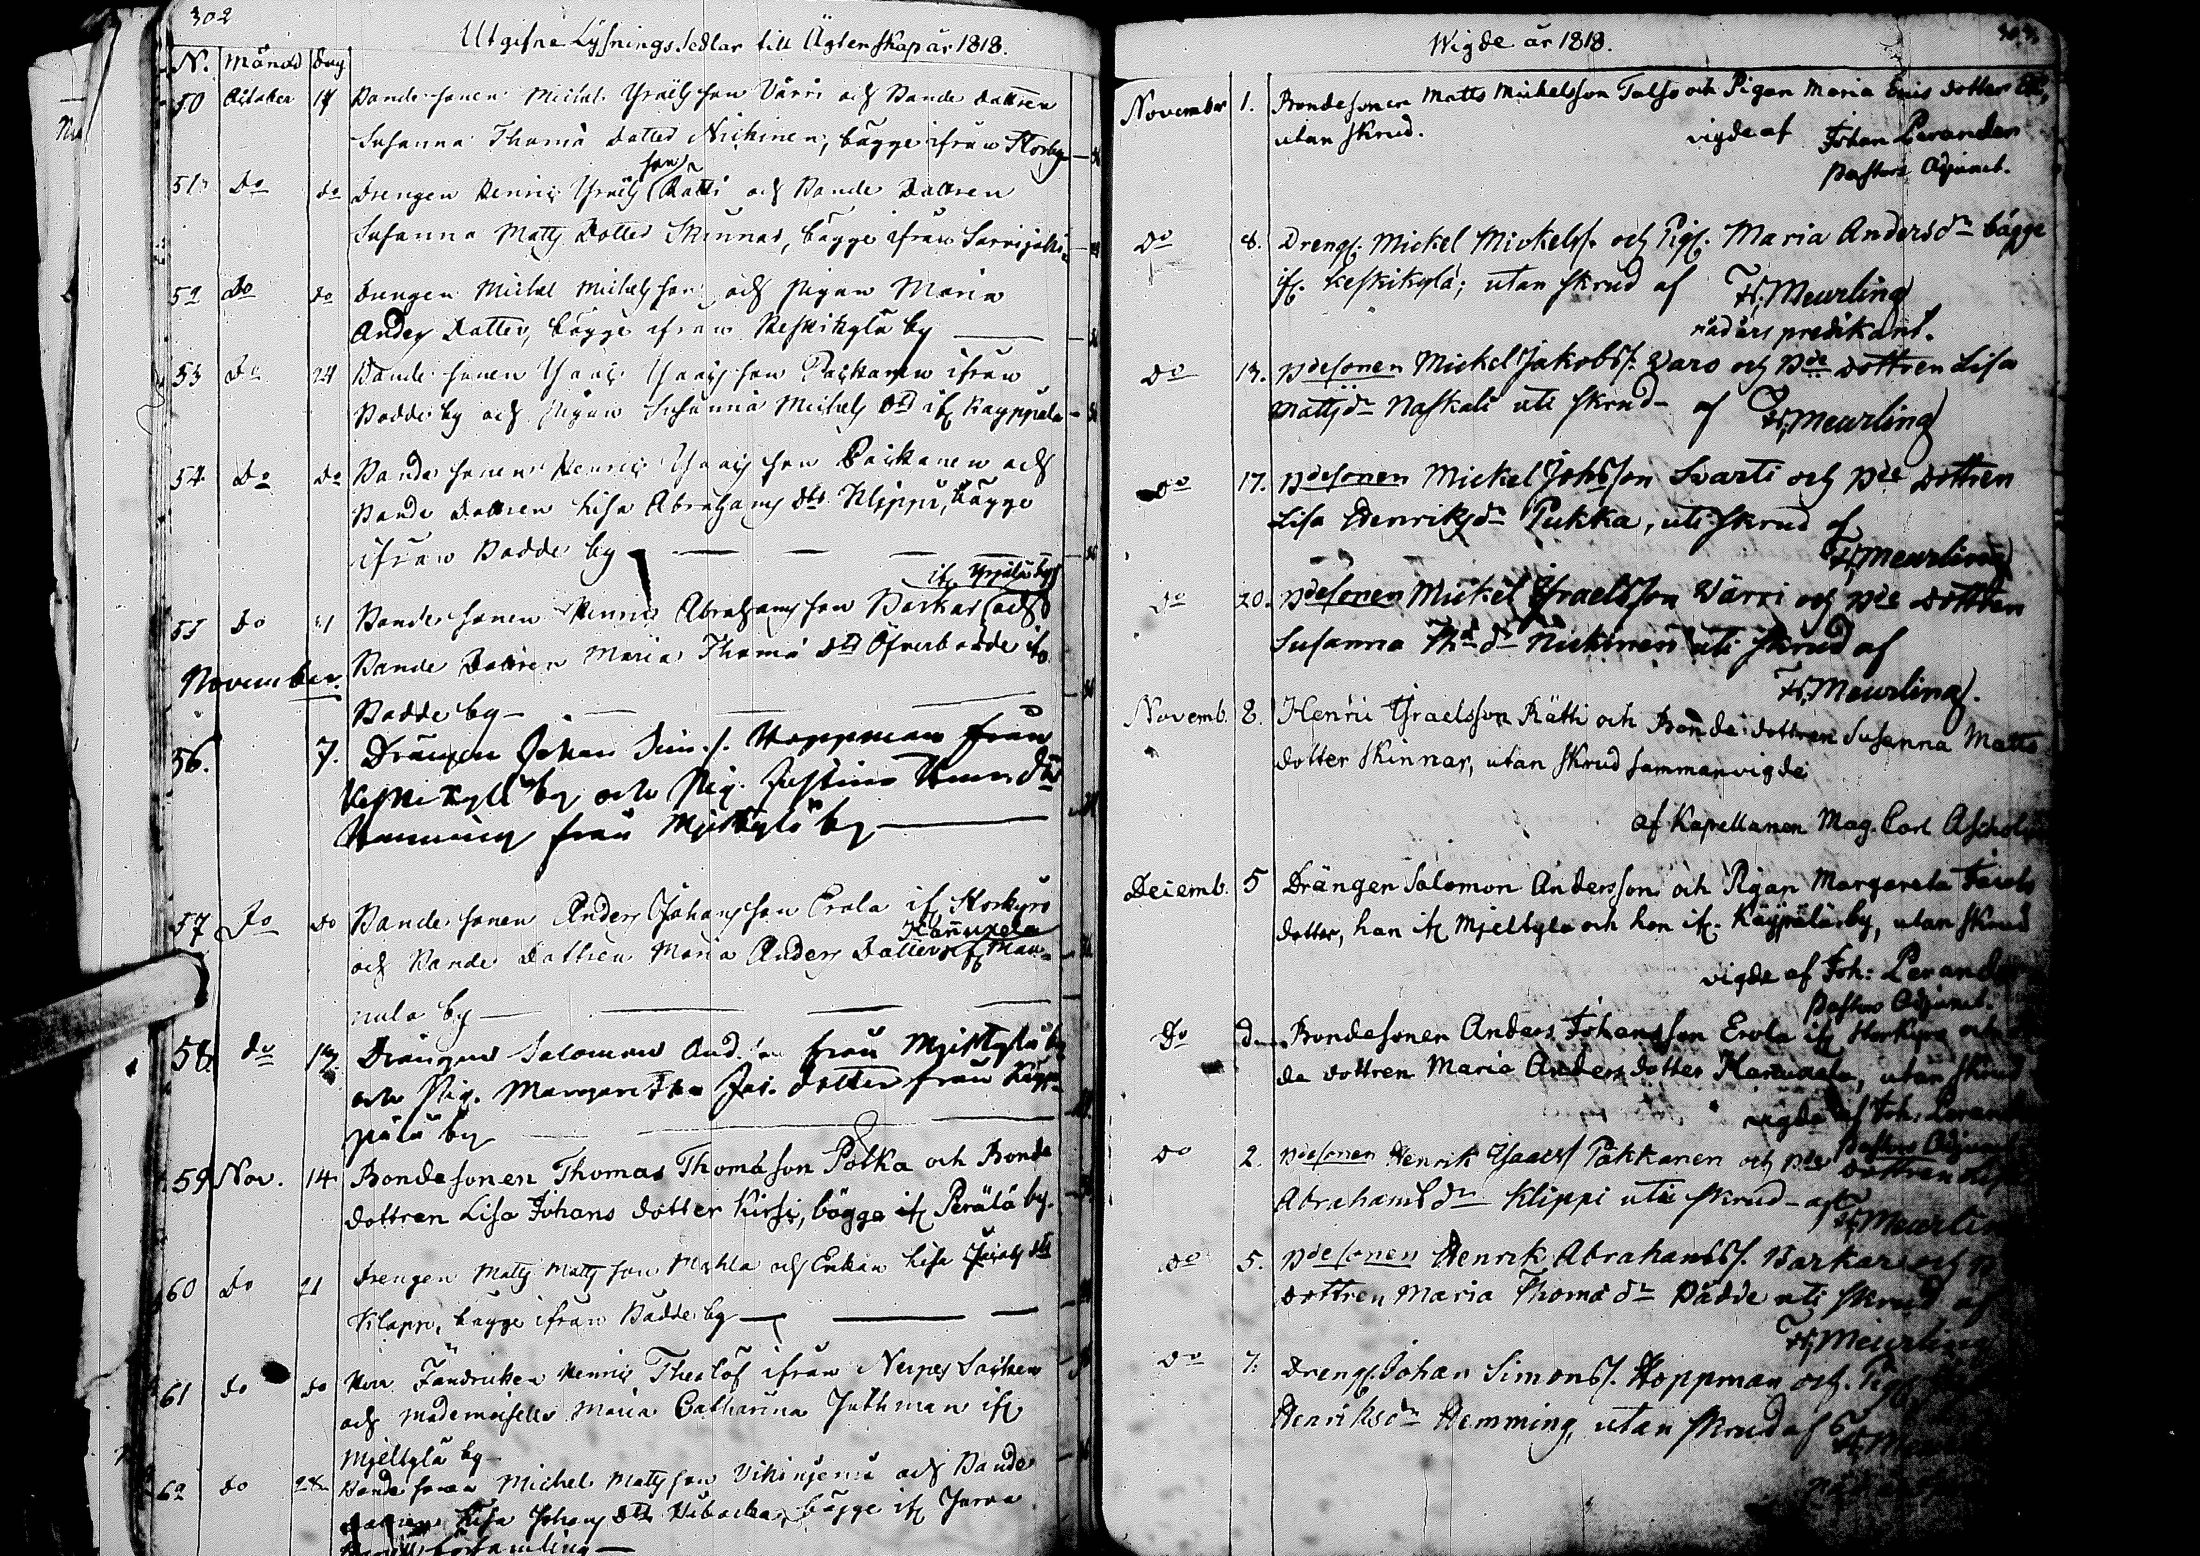 302
Utgifne Lysnings Sedlar till Ägtenskap år 1818.
N. Månad dag
50 October 17 Bonde sonen Michel Ysraels son Värri och Bonde dottren
Susanna Thoma dotter Nickinen, bägge ifrån Storby
51 Do do Drengen Henric Ysraels son Rätti och Bonde dottren
Susanna Matts Dotter Skinnar, bägge ifrån Sarvijoki
52 Do do Drengen Michel Michels son och Pigan Maria
Anders Dotter, bägge ifrån Keskikylä by
53 Do 24 Bonde sonen Ysaac Ysaacs son Packanen ifrån
Padde by och Pigan Susanna Michels Dtr if Käyppälä
54 Do do Bonde sonen Henric Ysaacs son Packanen och
Bonde dottren Lisa Abrahams Dtr Klippi, bägge
ifrån Padde by
if Yrjälä by
55 Do 31 Bonde sonen Henric Abrahams son Barkar och
November Bonde Dottren Maria Thoma Dtr Öfverbadde if
Padde by
56. 7. Drängen Johan Sim. s. Hoppman från
Keskikylä by och Pig. Justina Henr. Dtr
Hemming från Mjeltkylä by
57 Do do Bonde sonen Anders Johans son Erola if Storkyro
Hannuxela
och Bonde Dottren Maria Anders Dotter if Man-
nula by
58 do 14. Drängen Salomon And. son från Mjeltkylä by
och Pig. Margaretha Jac. dotter från Käyp-
pälä by
59 Nov. 14 Bondesonen Thomas Thomason Polka och Bonde
dottren Lisa Johans dotter Kirsi, bägge if Perälä by.
60 Do 21 Drengen Matts Matts son Mahla och Enkan Lisa Jacobs dtr
Klapp, bägge ifrån Padde by
61 do do Herr Fändricken Henric Theslöf ifrån Nerpes Socken
och Mademoiselle Maria Catharina Juthman if
Mjeltkylä by
62 do 28 Bonde sonen Michel Matts son och Bonde
dottren Lisa Johans Dtr bägge if
församling
Wigde år 1818.
303
November 1. Bondesonen Matts Mickelsson Talso och Pigan Maria Eric dotter
utan skrud. vigde af Johan Perander
Pastors Adjunct.
Do 8. Dreng. Mickel Mickelss. och Pig. Maria Andersdr bägge
if. Keskikylä; utan skrud af H. Meurling
nådårspredikant.
Do 13. Bdesonen Mickel Jakobss. Varo och Bde dottren Lisa
Mattsdr Naskali uti skrud af H. Meurling
Do 17. Bdesonen Mickel Johsson Svarti och Bde dottren
Lisa Henriksdr Pukka, uti skrud af
H. Meurling
Do 20. Bdesonen Mickel Ysraelsson Värri och Bde dottren
Susanna Thdr Nickinen uti skrud af
H. Meurling.
Novemb. 8. Henric Ysraelsson Rätti och Bonde dottren Susanna Matts
dotter Skinnar, utan skrud sammanvigde
af Kapellanen Mag. Carl Aschol
Decemb. 5 Drängen Salomon Andersson och Pigan Margareta Jacobs
dotter, han if Mjeltkyla och hon if. Käyppälä by, utan skrud
vigde af Joh: Perander
Pastors Adjunct.
Do d Bondesonen Anders Johansson Erola if Storkyro och
de dottren Maria Anders dotter Hannuxela, utan skrud
vigde af Joh. Perander
Pastors Adjunct
Do 2. Bdesonen Henrik Ysaacss Packanen och Bde dottren Lisa
Abrahamsdr Klippi uti skrud af
H. Meurling
Do 5. Bdesonen Henrik Abrahamss. Barkar och B
dottren Maria Thomadr Padde uti skrud af
H. Meurling
Do 7. Dreng. Johan Simonss. Hoppman och Pig.
Henriksdr Hemming, utan skrud af